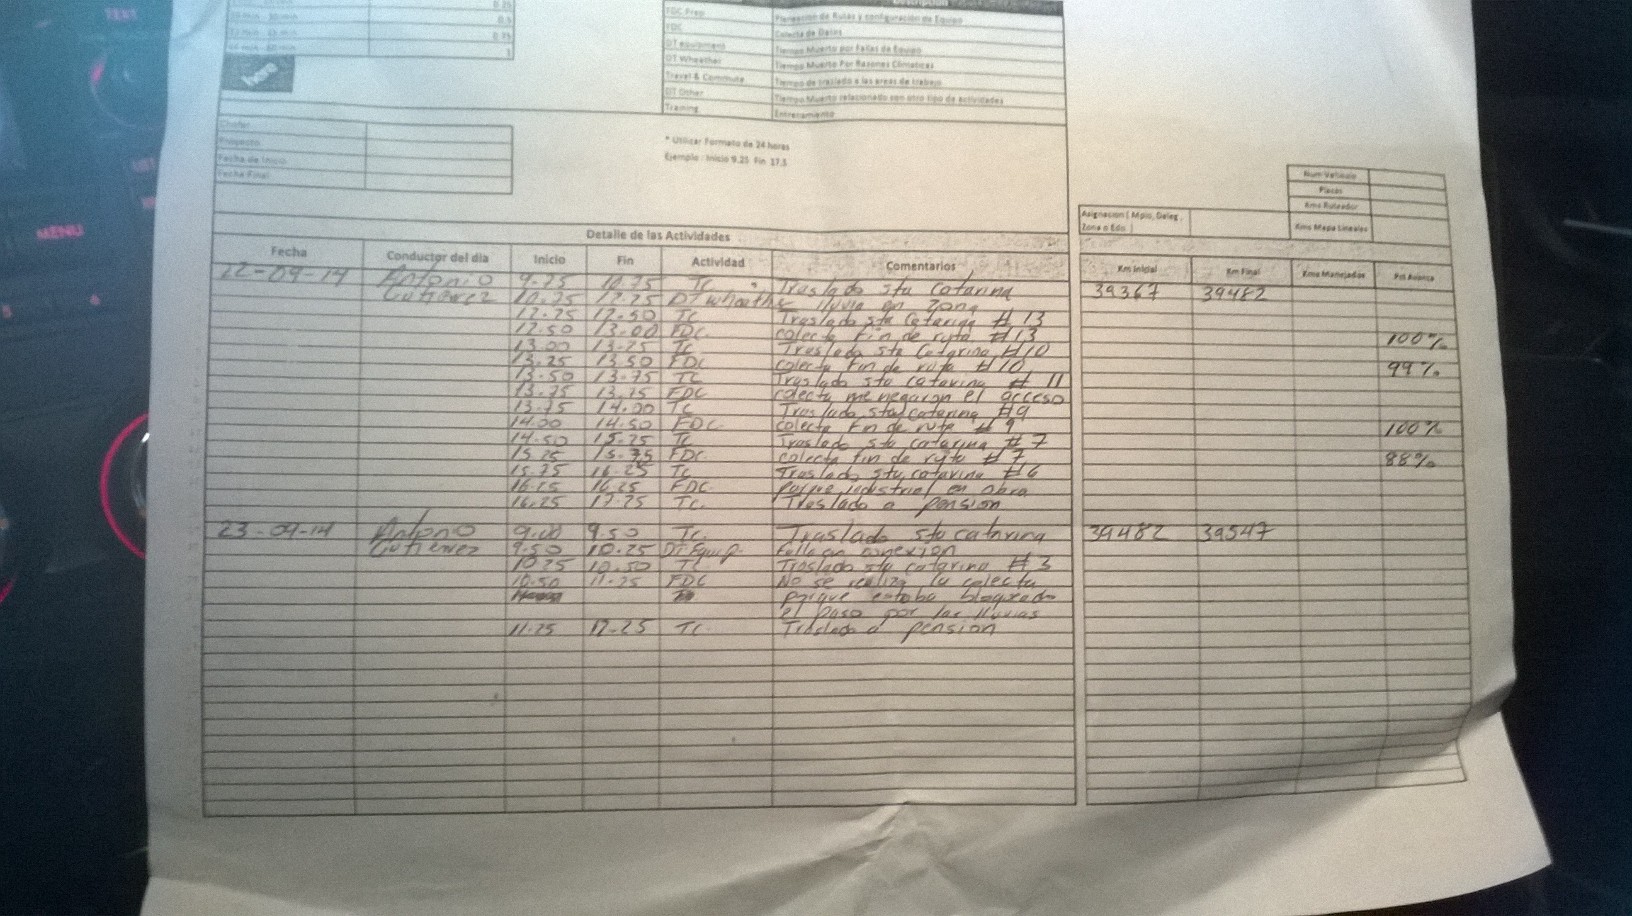 TEXT
MENU
0.25
0.5
0.75
1
here
Descripcion
FDC Prep Planeacion de Rutas y configuración de Equipo
FDC Colecta de Datos
DT equipment Tiempo Muerto por Fallas de Equipo
DT Wheather Tiempo Muerto Por Razones Climaticas
Travel & Commute Tiempo de traslado a las areas de trabajo
DT Other Tiempo Muerto relacionado con otro tipo de actividades
Training Entrenamiento
Chofer
Proyecto
Fecha de Inicio
Fecha Final
* Utilizar Formato de 24 horas
Ejemplo : Inicio 9.25 Fin 17.5
Num Vehiculo
Placas
Kms Ruteador
Kms Mapa Lineales
Asignacion ( Mpio, Deleg,
Zona o Edo )
Detalle de las Actividades
Fecha Conductor del dia Inicio Fin Actividad Comentarios Km Inicial Km Final Kms Manejados Pct Avance
-09-14 Antonio 9.75 10.75 Tc Traslado sta catarina 39367 39482
Gutierrez 10.75 12.25 DT wheather lluvia en zona
12.25 12.50 Tc Traslado sta Catarina #13
12.50 13.00 FDC. colecta Fin de ruta #13 100%
13.00 13.25 Tc Traslado sta Catarina #10
13.25 13.50 FDC colecta Fin de ruta #10 99%
13.50 13.75 Tc Traslado sta catarina # 11
13.75 13.75 FDC colecta me negaron el acceso
13.75 14.00 Tc Traslado sta catarina #9
14.00 14.50 FDC. colecta Fin de ruta # 9 100%
14.50 15.25 Tc Traslado sta catarina # 7
15.25 15.75 FDC. colecta fin de ruta # 7 88%
15.75 16.25 Tc Traslado sta catarina #6
16.25 16.25 FDC. parque industrial en obra
16.25 17.25 Tc. Traslado a pension
23-09-14 Antonio 9.00 9.50 Tc. Traslado sta catarina 39482 39547
Gutierrez 9.50 10.25 DT Equip. Falla en conexion
10.25 10.50 Tc. Traslado sta catarina # 3
10.50 11.25 FDC No se realiza la colecta
porque estaba bloqueado
el paso por las lluvias
11.25 12.25 Tc. Traslado a pension